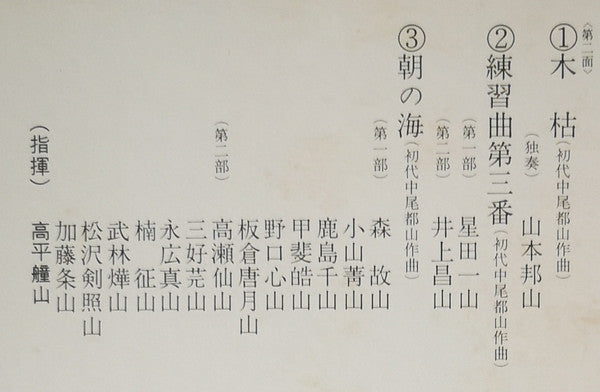 〈第二面〉
①木　枯(初代中尾都山作曲)
(独奏)　山本邦山
②練習曲第三番(初代中尾都山作曲)
(第一部)　星田一山
(第二部)　井上昌山
③朝の海(初代中尾都山作曲)
(第一部)　森　故山
小山菁山
鹿島千山
甲斐皓山
野口心山
板倉唐月山
(第二部)　高瀬仙山
三好芫山
永広真山
楠　征山
武林燁山
松沢剣照山
加藤条山
(指揮)　高平艟山